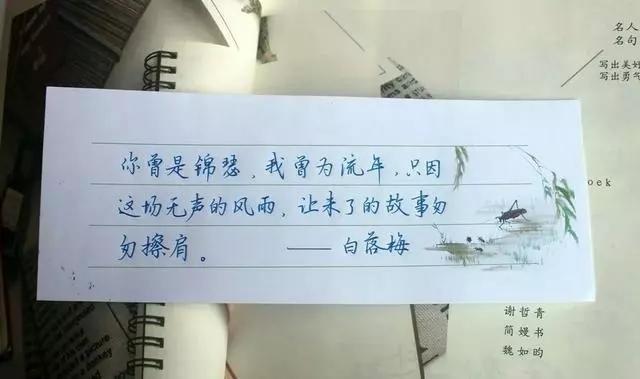 名人
名句
写出美好
写出勇气
你曾是锦瑟,我曾为流年,只因
这场无声的风雨,让未了的故事匆
匆擦肩。 ——白落梅
oek
谢哲青
简嫚书
魏如昀